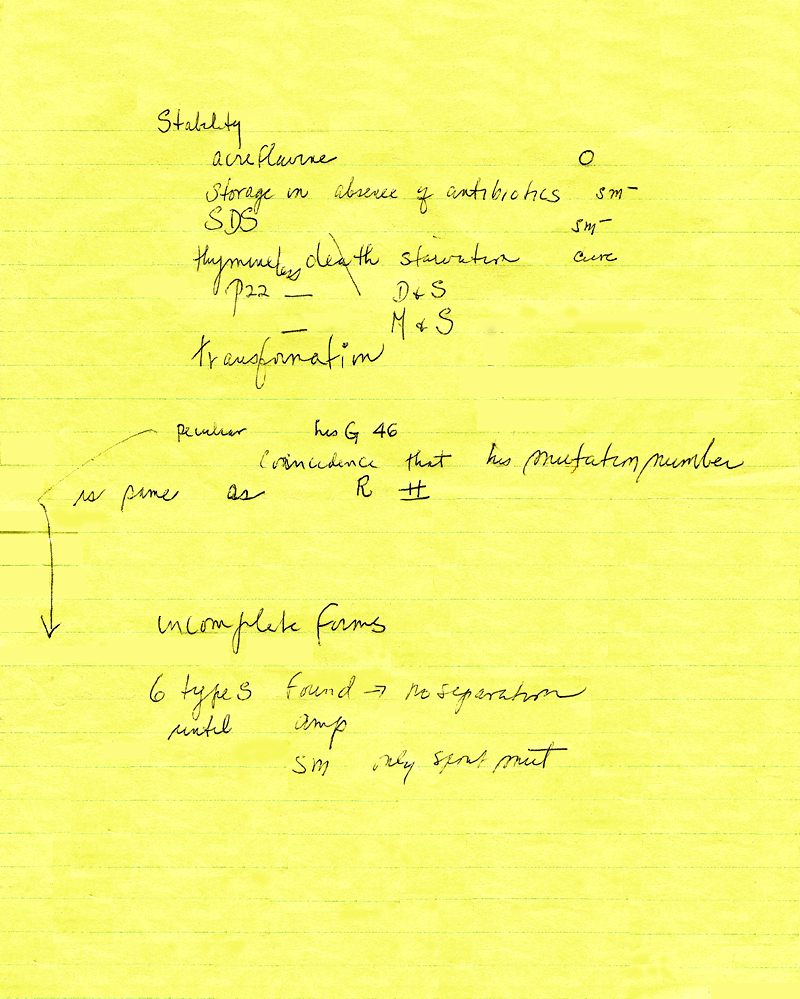 Stability
acreflavine O
Storage in absence of antibiotics sm⁻
SDS sm⁻
thymineless death starvation cure
P22 — D & S
— M & S
transformation
peculiar his G 46
Coincidence that his mutation number
is same as R #
incomplete forms
6 types found → no separation
until amp
sm only spont mut